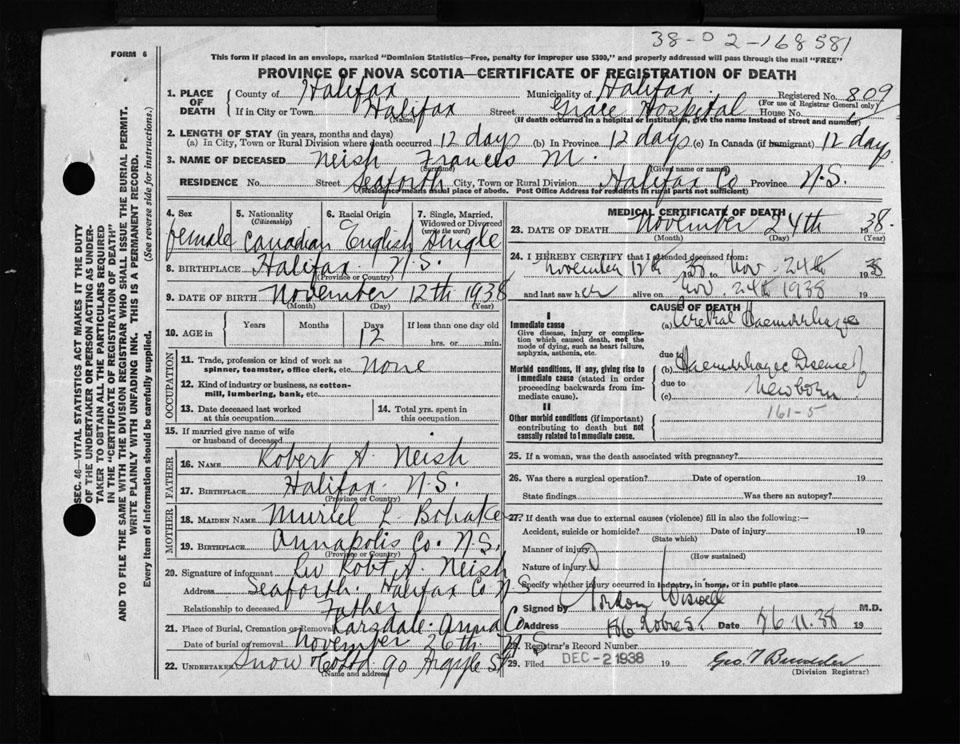 38-02-168581
FORM 6
This form if placed in an envelope, marked "Dominion Statistics—Free, penalty for improper use $300," and properly addressed will pass through the mail "FREE"
PROVINCE OF NOVA SCOTIA—CERTIFICATE OF REGISTRATION OF DEATH
1. PLACE OF DEATH County of Halifax Municipality of Halifax. Registered No. 809
(For use of Registrar General only)
If in City or Town Halifax Street Grace Hospital House No.
(Name) (If death occurred in a hospital or institution, give the name instead of street and number)
2. LENGTH OF STAY (in years, months and days)
(a) In City, Town or Rural Division where death occurred 12 days (b) In Province 12 days (c) In Canada (if immigrant) 12 days
3. NAME OF DECEASED Neish Frances M.
(Surname) (Given name or names)
RESIDENCE No. Street Seaforth City, Town or Rural Division Halifax Co Province N.S.
(Residence means usual place of abode. Post Office Address for residents in rural parts not sufficient)
4. Sex female
5. Nationality (Citizenship) Canadian
6. Racial Origin English
7. Single, Married, Widowed or Divorced (write the word) Single
8. BIRTHPLACE Halifax. N.S.
(Province or Country)
9. DATE OF BIRTH November 12th 1938
(Month) (Day) (Year)
10. AGE in Years Months Days 12 If less than one day old hrs. or min.
OCCUPATION
11. Trade, profession or kind of work as spinner, teamster, office clerk, etc. None
12. Kind of industry or business, as cotton-mill, lumbering, bank, etc.
13. Date deceased last worked at this occupation
14. Total yrs. spent in this occupation
15. If married give name of wife or husband of deceased
FATHER
16. NAME Robert A. Neish
17. BIRTHPLACE Halifax. N.S.
(Province or Country)
MOTHER
18. MAIDEN NAME Muriel L. Bohaker
19. BIRTHPLACE Annapolis Co. N.S.
(Province or Country)
20. Signature of informant Rev Robt A. Neish
Address Seaforth. Halifax Co N.S
Relationship to deceased Father
21. Place of Burial, Cremation or Removal Karsdale. Anna Co
Date of burial or removal November 26th N.S
22. UNDERTAKER Snow & Co Ltd. 90 Argyle St
(Name and address)
MEDICAL CERTIFICATE OF DEATH
23. DATE OF DEATH November 24th 1938.
(Month) (Day) (Year)
24. I HEREBY CERTIFY that I attended deceased from
November 12th 38 to Nov. 24th 1938
and last saw her alive on Nov. 24th 1938
CAUSE OF DEATH
I
Immediate cause
Give disease, injury or complication which caused death, not the mode of dying, such as heart failure, asphyxia, asthenia, etc.
(a) Cerebral Haemorrhage
due to
Morbid conditions, if any, giving rise to immediate cause (stated in order proceeding backwards from immediate cause).
(b) Haemorrhagic Disease of
due to Newborn
(c)
161-5
II
Other morbid conditions (if important) contributing to death but not causally related to immediate cause.
25. If a woman, was the death associated with pregnancy?
26. Was there a surgical operation? Date of operation 19
State findings Was there an autopsy?
27. If death was due to external causes (violence) fill in also the following:—
Accident, suicide or homicide? Date 19
(State which)
Manner of injury
(How sustained)
Nature of injury
Specify whether injury occurred in industry, in home, or in public place
Signed by Gordon Wiswell M.D.
Address Robie St. Date 26.11.38 19
28. Registrar's Record Number
29. Filed DEC - 2 1938 19
(Division Registrar)
SEC. 46—VITAL STATISTICS ACT MAKES IT THE DUTY
OF THE UNDERTAKER OR PERSON ACTING AS UNDER-
TAKER TO OBTAIN ALL THE PARTICULARS REQUIRED
IN THE "CERTIFICATE OF REGISTRATION OF DEATH"
AND TO FILE THE SAME WITH THE DIVISION REGISTRAR WHO SHALL ISSUE THE BURIAL PERMIT.
WRITE PLAINLY WITH UNFADING INK. THIS IS A PERMANENT RECORD.
Every item of information should be carefully supplied. (See reverse side for instructions.)